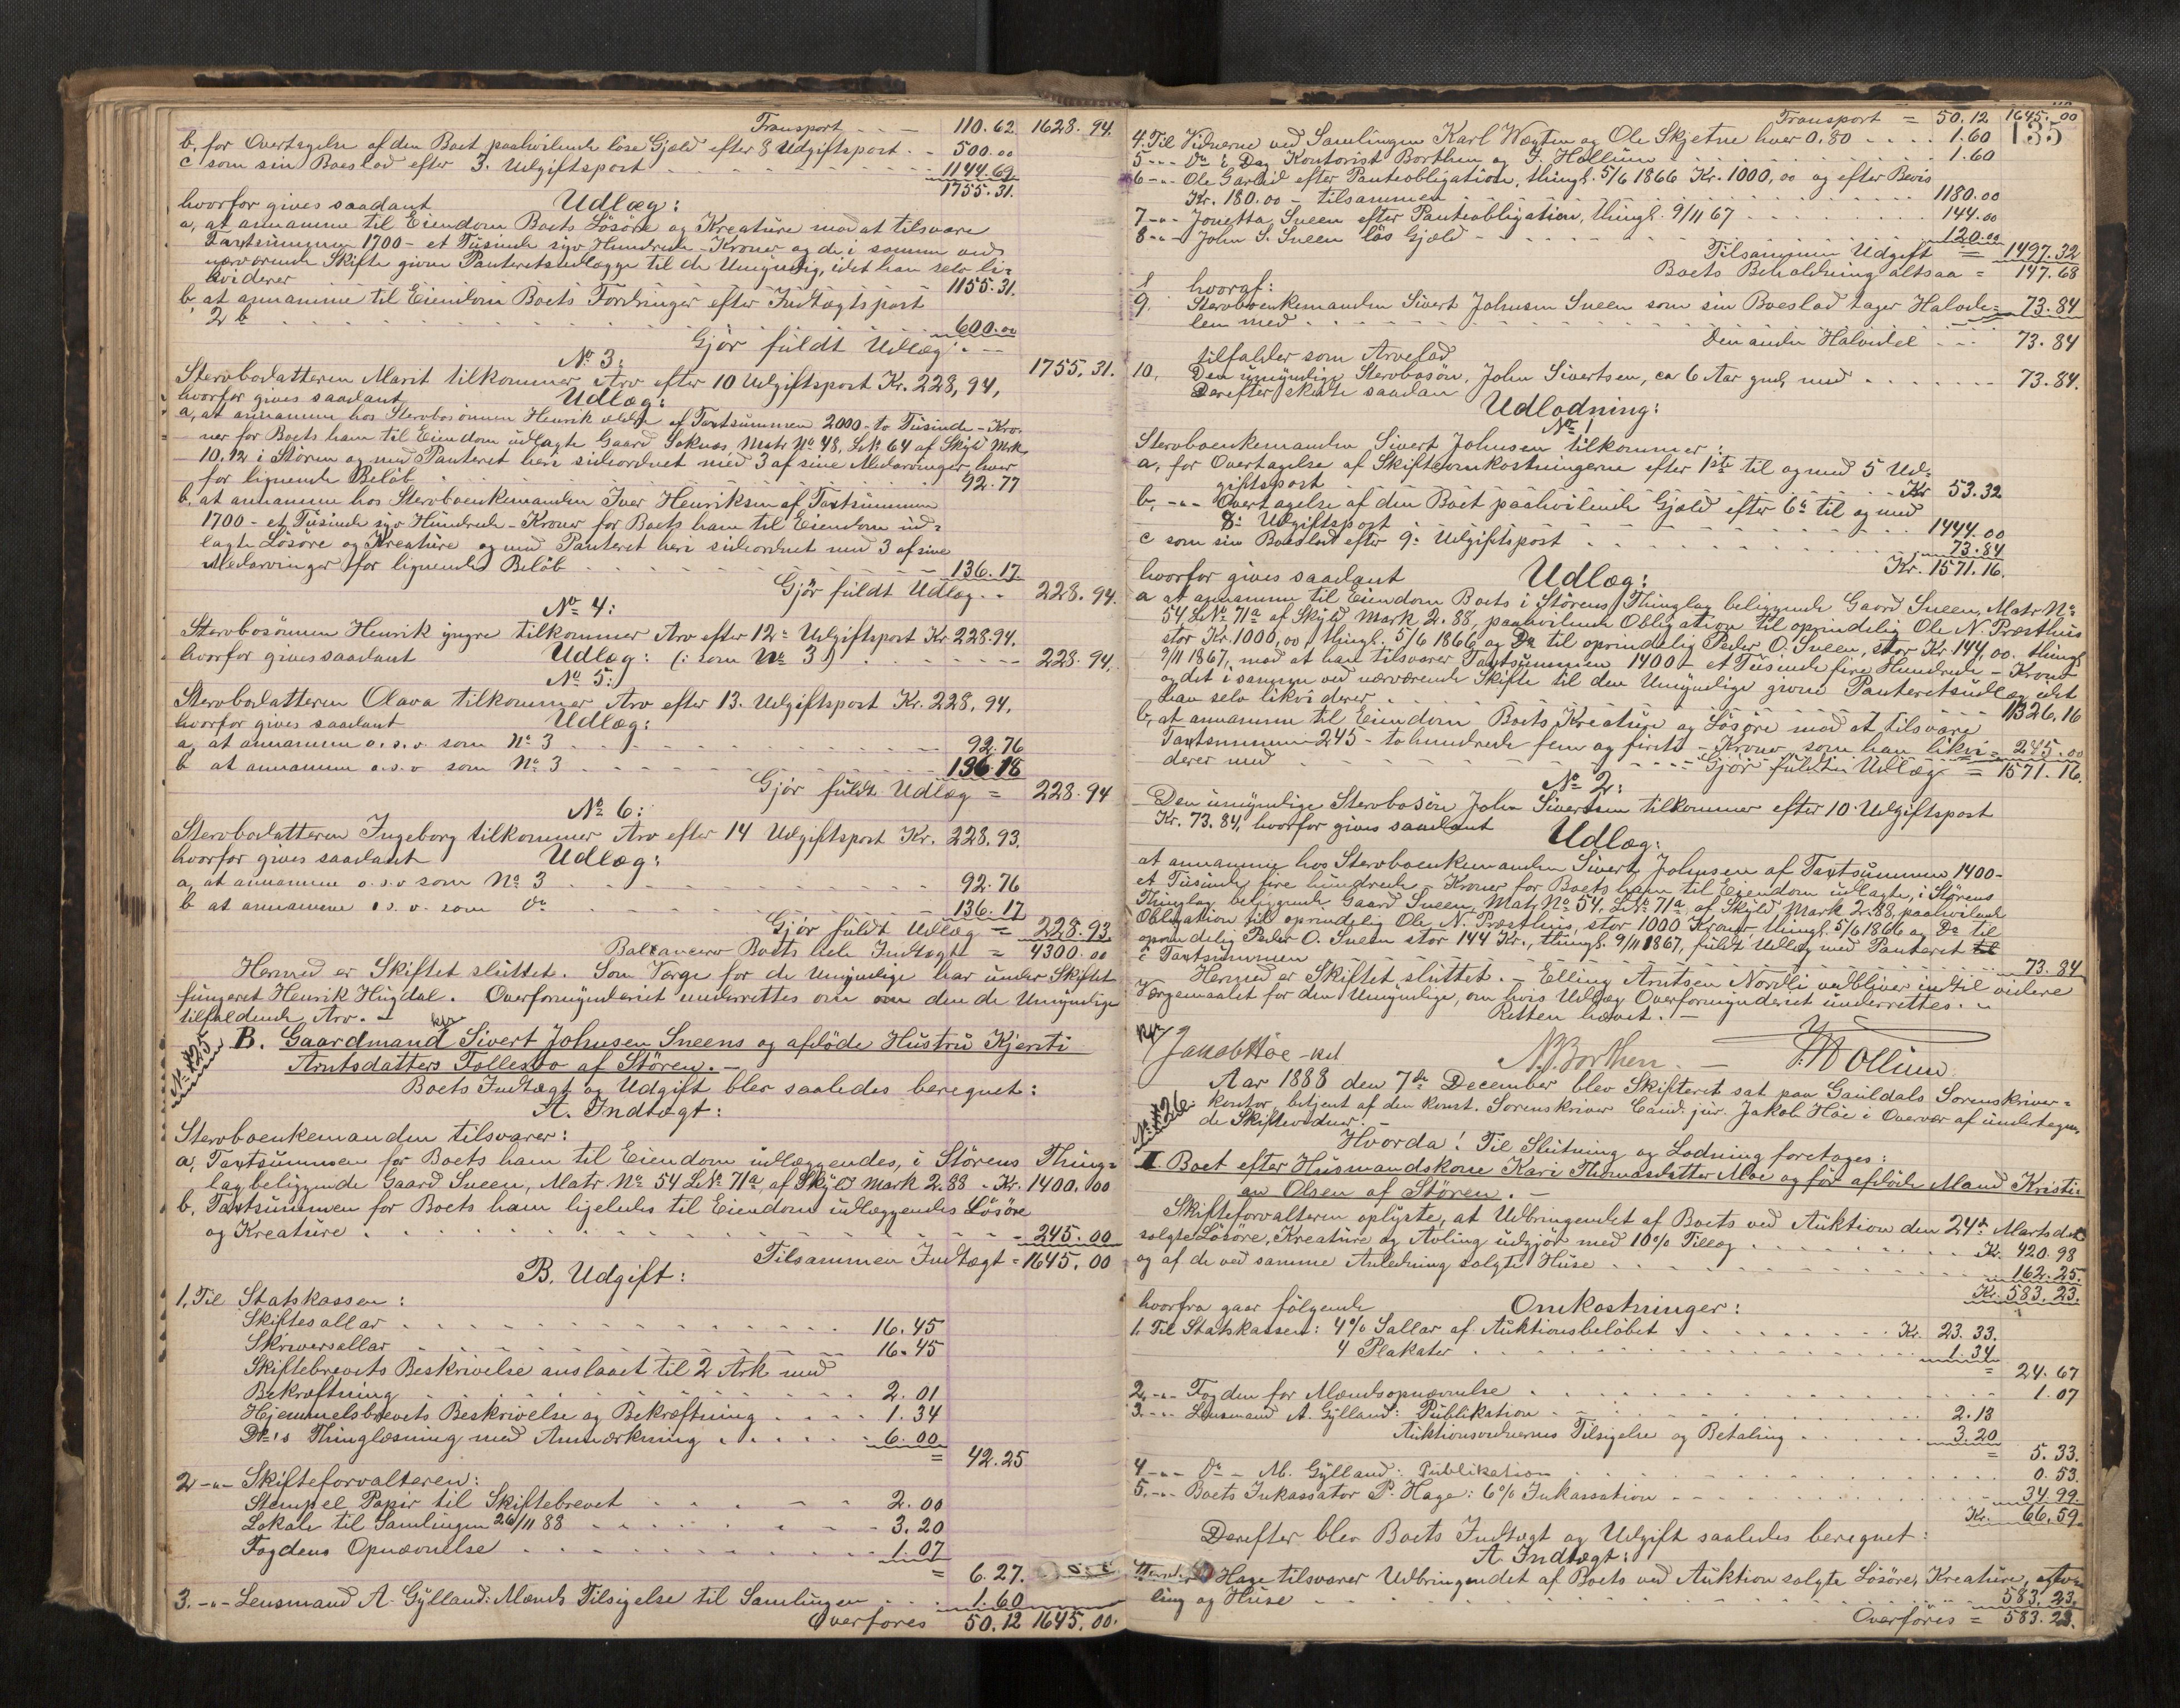 Transport - - - 110.62. 1628.94.
b, for Overtagelse af den Boet paahvilende löse Gjæld efter 8 Udgiftspost . - 500.00
c som sin Boeslod efter 3. Udgiftspost - - - 1144.69
1755.31.
hvorfor gives saadant Udlæg:
a, at annamme til Eiendom Boets Lösöre og Kreature mod at tilsvare
Taxtsummen 1700 - et Tusinde syv Hundrede - Kroner og de i samme ved
nærværende Skifte givne Panteretsudlægge til de Umyndig, idet han selv li=
kviderer 1155.31.
b at annamme til Eiendom Boets Fordringer efter Indtægtspost
2 b - - - 600.00
Gjör fuldt Udlæg . - 1755.31.
No 3:
Stervbodatteren Marit tilkommer Arv efter 10 Udgiftspost Kr. 228,94,
hvorfor gives saadant Udlæg:
a, at annamme hos Stervbosönnen Henrik ældre af Taxtsummen 2000 - to Tusinde - Kro-
ner for Boets ham til Eiendom udlagte Gaard Soknæs, Matr No 48, L No 64 af Skyld Mrk
10.12 i Stören og med Panteret heri sideordnet med 3 af sine Medarvinger hver
for lignende Belöb - - - 92.77
b, at annamme hos Stervboenkemanden Iver Henriksen af Taxtsummen
1700 - et Tusinde syv Hundrede - Kroner for Boets ham til Eiendom ud=
lagte Lösöre og Kreature og med Panteret heri sideordnet med 3 af sine
Medarvinger for lignende Belöb - - - 136.17
Gjör fuldt Udlæg . - 228.94.
No 4:
Stervbosönnen Henrik yngre tilkommer Arv efter 12te Udgiftspost Kr 228.94.
hvorfor gives saadant Udlæg: (: som No 3 :) - - - 228.94.
No 5:
Stervbodatteren Olava tilkommer Arv efter 13. Udgiftspost Kr. 228.94.
hvorfor gives saadant Udlæg:
a, at annamme o.s.v. som No 3 - - - 92.76
b at annamme o.s.v som No 3 - - - 136.18
Gjör fuldt Udlæg = 228.94
No 6:
Stervbodatteren Ingeborg tilkommer Arv efter 14 Udgiftspost Kr. 228.93.
hvorfor gives saadant Udlæg:
a, at annamme o.s.v som No 3 - - - 92.76
b at annamme o.s.v. som Do - - - 136.17
Gjör fuldt Udlæg = 228.93
Balancerer Boets hele Indtægt = 4300.00
Hermed er Skiftet sluttet. Som Værge for de Umyndige har under Skiftet
fungeret Henrik Hugdal. Overformynderiet underrettes om om den de Umyndige
tilfaldende Arv. -
No 125
B. Gaardmand Sivert Johnsen Sneens og afdöde Hustru Kjersti
Arntsdatters Follesbo af Stören. -
Boets Indtægt og Udgift blev saaledes beregnet:
A. Indtægt:
Stervboenkemanden tilsvarer:
a, Taxtsummen for Boets ham til Eiendom udlæggendes, i Störens Thing=
lag beliggende Gaard Sneen, Matr No 54 L No 71a, af Skyld Mark 2.88 . Kr. 1400.00
b, Taxtsummen for Boets ham ligeledes til Eiendom udlæggendes Lösöre
og Kreature - - - 245.00
Tilsammen Indtægt = 1645.00
B. Udgift:
1, Til Statskassen:
Skiftesallar - - - 16.45
Skriversallar - - - 16.45
Skiftebrevets Beskrivelse anslaaet til 2 Ark med
Bekræftning - - - 2.01
Hjemmelsbrevets Beskrivelse og Bekræftning - - - 1.34
Do's Thinglæsning med Anmærkning - - - 6.00
= 42.25
2 -"- Skifteforvalteren:
Stempel Papir til Skiftebrevet - - - 2.00
Lokale til Samlingen 26/11 88 - - - 3.20
Fogdens Opnævnelse - - - 1.07
= 6.27.
3. -"- Lensmand A. Gylland: Mænds Tilsigelse til Samlingen - - - 1.60
Overföres 50.12 1645.00.
Transport = 50.12 1645.00
135
4. Til Vidnerne ved Samlingen Karl Wægten og Ole Skjetne hver 0.80 - - - 1.60
5 -"- Do i Dag Kontorist Borthen og J. Hollum - - - 1.60
6 -"- Ole Garlid efter Panteobligation, thingl. 5/6 1866 Kr. 1000,00 og efter Bevis
Kr. 180.00 - tilsammen - - - 1180.00
7 -"- Jonetta Sneen efter Panteobligation, thingl. 9/11 67 - - - 144.00
8 -"- John S. Sneen lös Gjæld - - - 120.00
Tilsammen Udgift = 1497.32
Boets Beholdning altsaa = 147.68
hvoraf:
9. Stervboenkemanden Sivert Johnsen Sneen som sin Boeslod tager Halvde=
len med - - - 73.84
Den anden Halvdel - - - 73.84
tilfalder som Arvelod
10, Den umyndige Stervbosön, John Sivertsen, ca 6 Aar gml, med - - - 73.84.
Derefter skede saadan
Udlodning:
No 1
Stervboenkemanden Sivert Johnsen tilkommer:
a, for Overtagelse af Skifteomkostningerne efter 1ste til og med 5 Ud=
giftspost - - - Kr 53.32
b, -"- Overtagelse af den Boet paahvilende Gjæld efter 6te til og med
8de Udgiftspost - - - 1444.00
c som sin Boeslod efter 9de Udgiftspost - - - 73.84
Kr. 1571.16.
hvorfor gives saadant Udlæg:
a at annamme til Eiendom Boets i Störens Thinglag beliggende Gaard Sneen, Matr No
54 L No 71a af Skyld Mark 2.88, paahvilende Obligation til oprindelig Ole N. Præsthus
stor Kr. 1000,00 thingl. 5/6 1866 og Do til oprindelig Peder O. Sneen, stor Kr. 144,00. thingl
9/11 1867, mod at han tilsvarer Taxtsummen 1400 - et Tusinde fire Hundrede - Kroner
og det i samme ved nærværende Skifte til den Umyndige givne Panteretsudlæg, idet
han selv likviderer - - - 1326.16
b, at annamme til Eiendom Boets Kreature og Lösöre mod at tilsvare
Taxtsummen 245 - to hundrede fem og firti - Kroner, som han likvi=
derer med - - - 245.00
Gjör fuldt Udlæg = 1571.16.
No 2:
Den umyndige Stervbosön John Sivertsen tilkommer efter 10 Udgiftspost
Kr. 73.84, hvorfor gives saadant Udlæg:
at annamme hos Stervboenkemanden Sivert Johnsen af Taxtsummen 1400 -
et Tusinde fire hundrede - Kroner for Boets ham til Eiendom udlagte, i Störens
Thinglag beliggende Gaard Sneen, Matr No 54, L No 71a af Skyld Mark 2.88, paahvilende
Obligation til oprindelig Ole N. Præsthus, stor 1000 Kroner thingl. 5/6 1866 og Do til
oprindelig Peder O. Sneen stor 144 Kr., thingl. 9/11 1867, fuldt Udlæg med Panteret til
i Taxtsummen - - - 73.84
Hermed er Skiftet sluttet. - Elling Arntsen Nordli vedbliver indtil videre
Værgemaalet for den Umyndige, om hvis Udlæg Overformynderiet underrettes. -
Retten hævet. -
Jakob Höe - kst N. Borthen. - J. Hollum
Aar 1888 den 7de December blev Skifteret sat paa Gauldals Sorenskriver=
kontor, betjent af den konst. Sorenskriver Cand. jur. Jakob Höe i Overvær af undertegne-
de Skiftevidner. -
No 126
Hvorda! Til Slutning og Lodning foretoges:
I Boet efter Husmandskone Kari Thomasdatter Moe og för afdöde Mand Kristi-
an Olsen af Stören. -
Skifteforvalteren oplyste, at Udbringendet af Boets ved Auktion den 24de Marts d.A.
solgte Lösöre, Kreature og Avling udgjör med 10% Tillæg - - - Kr. 420.98
og af de ved samme Anledning solgte Huse - - - 162.25.
Kr. 583.23.
hvorfra gaar fölgende Omkostninger:
1. Til Statskassen: 4% Sallar af Auktionsbelöbet - - - Kr. 23.33.
4 Plakater - - - 1.34
= 24.67
2, -"- Fogden for Mændsopnævnelse - - - 1.07
3. -"- Lensmand A. Gylland: Publikation - - - 2.13
Auktionsvidnernes Tilsigelse og Betaling - - - 3.20
= 5.33.
4 -"- Do - M. Gylland: Publikation - - - 0.53.
5. -"- Boets Inkassator P. Hage: 6% Inkassation - - - 34.99
Kr. 66.59.
Derefter blev Boets Indtægt og Udgift saaledes beregnet:
A Indtægt:
Hage tilsvarer Udbringendet af Boets ved Auktion solgte Lösöre, Kreature,
ling og Huse - - - 583.23.
Overföres = 583.23.